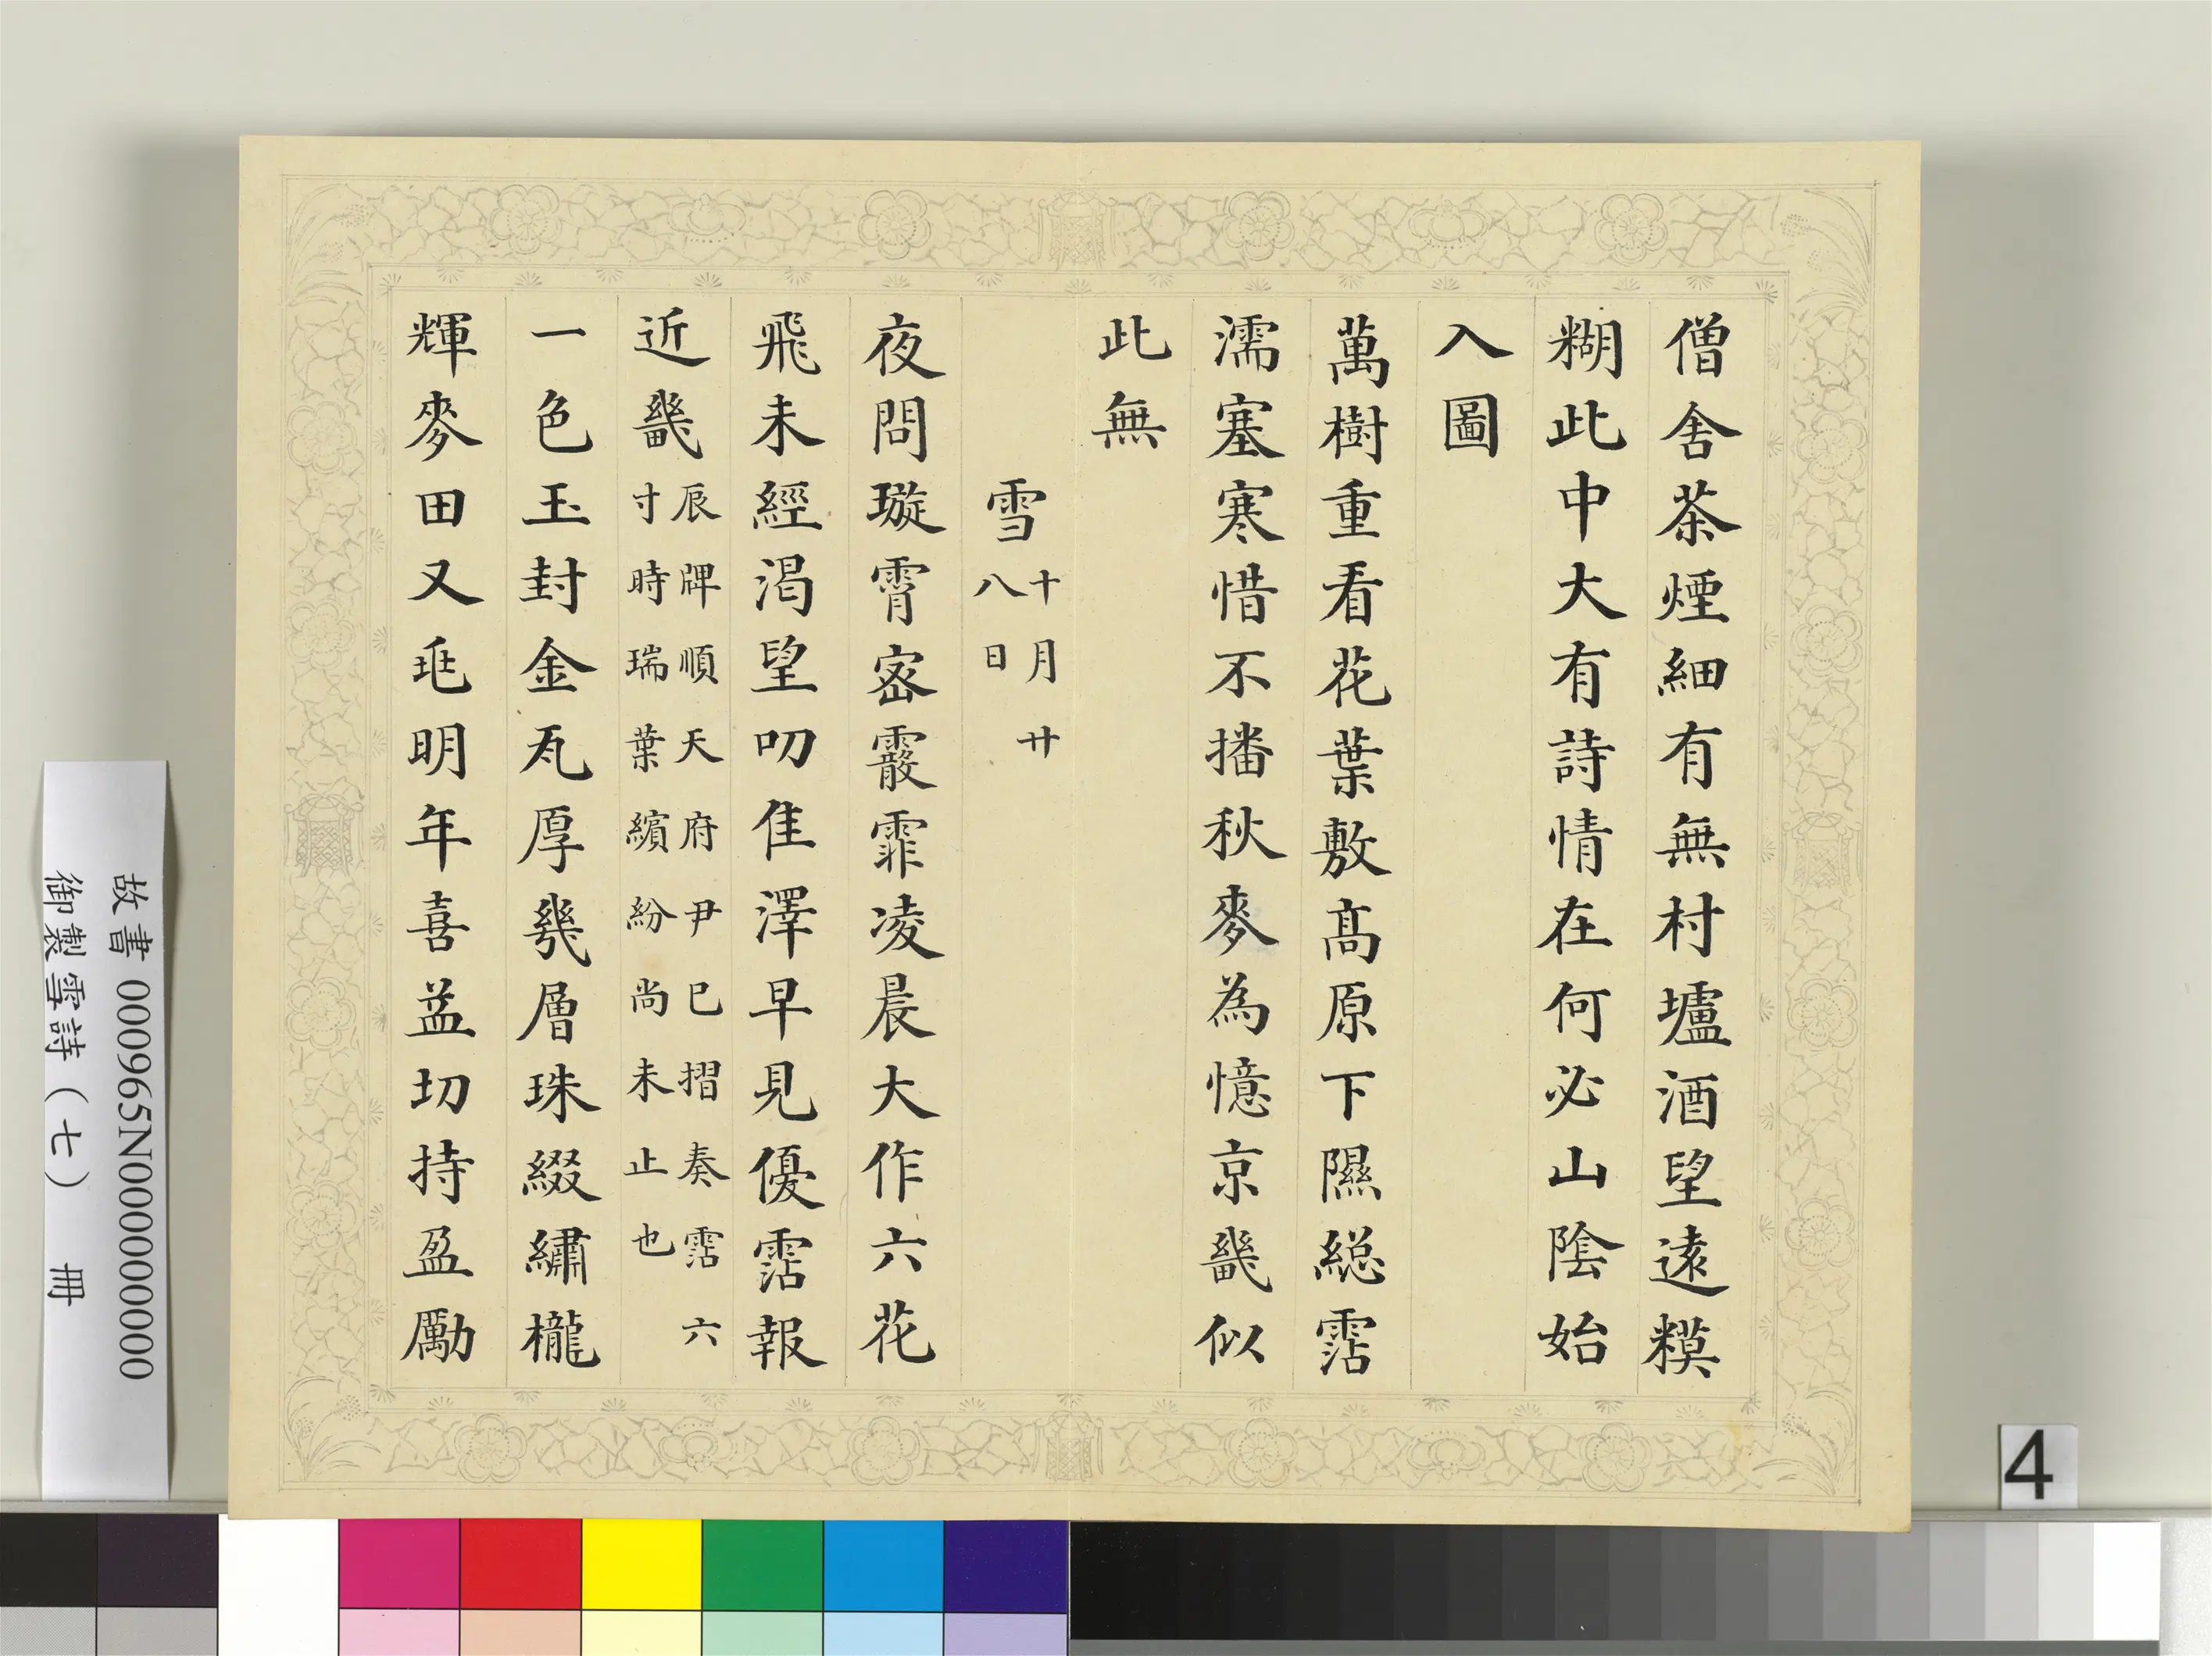 僧舍茶煙細有無村壚酒望遠糢
糊此中大有詩情在何必山陰始
入圖
萬樹重看花葉敷高原下隰総霑
濡塞寒惜不播秋麥為憶京畿似
此無
雪十月廿
八日
夜問璇霄宻霰霏凌晨大作六花
飛未經渴望叨隹澤早見優霑報
近畿辰牌順天府尹已摺奏霑六
寸時瑞葉繽紛尚未止也
一色玉封金瓦厚幾層珠綴繡櫳
輝麥田又兆明年喜益切持盈勵
故書 000965N000000000
御製雪詩（七） 冊
4